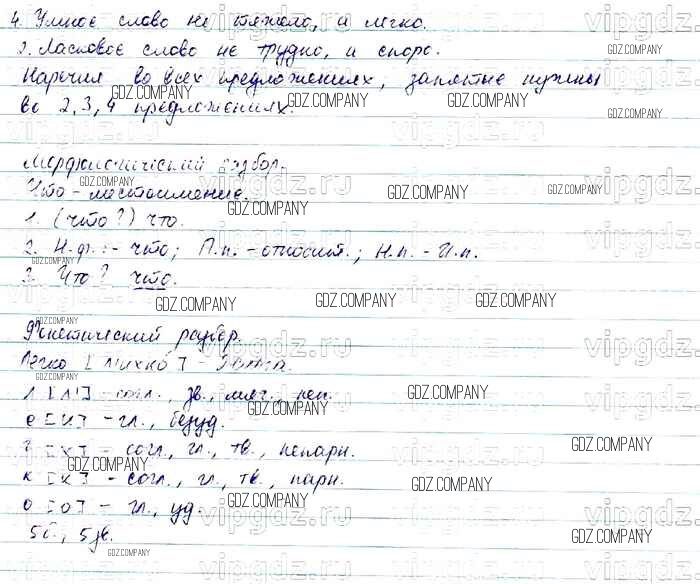 4. Умное слово не тяжело, а легко.
2. Ласковое слово не трудно, и споро.
Наречия во всех предложениях, запятые нужны
во 2, 3, 4 предложениях.
Морфологический разбор.
Что - местоимение.
1. (что?) что.
2. Н.ф.: - что; П.п. - относит.; Н.п. - И.п.
3. Что? что.
Фонетический разбор.
Легко [л'ихко́] -
л [л'] - согл., зв., мяг., неп.
е [и] - гл., безуд.
г [х] - согл., гл., тв., непарн.
к [к] - согл., гл., тв., парн.
о [о] - гл., уд.
5б., 5зв.
GDZ.COMPANY
vipgdz.ru